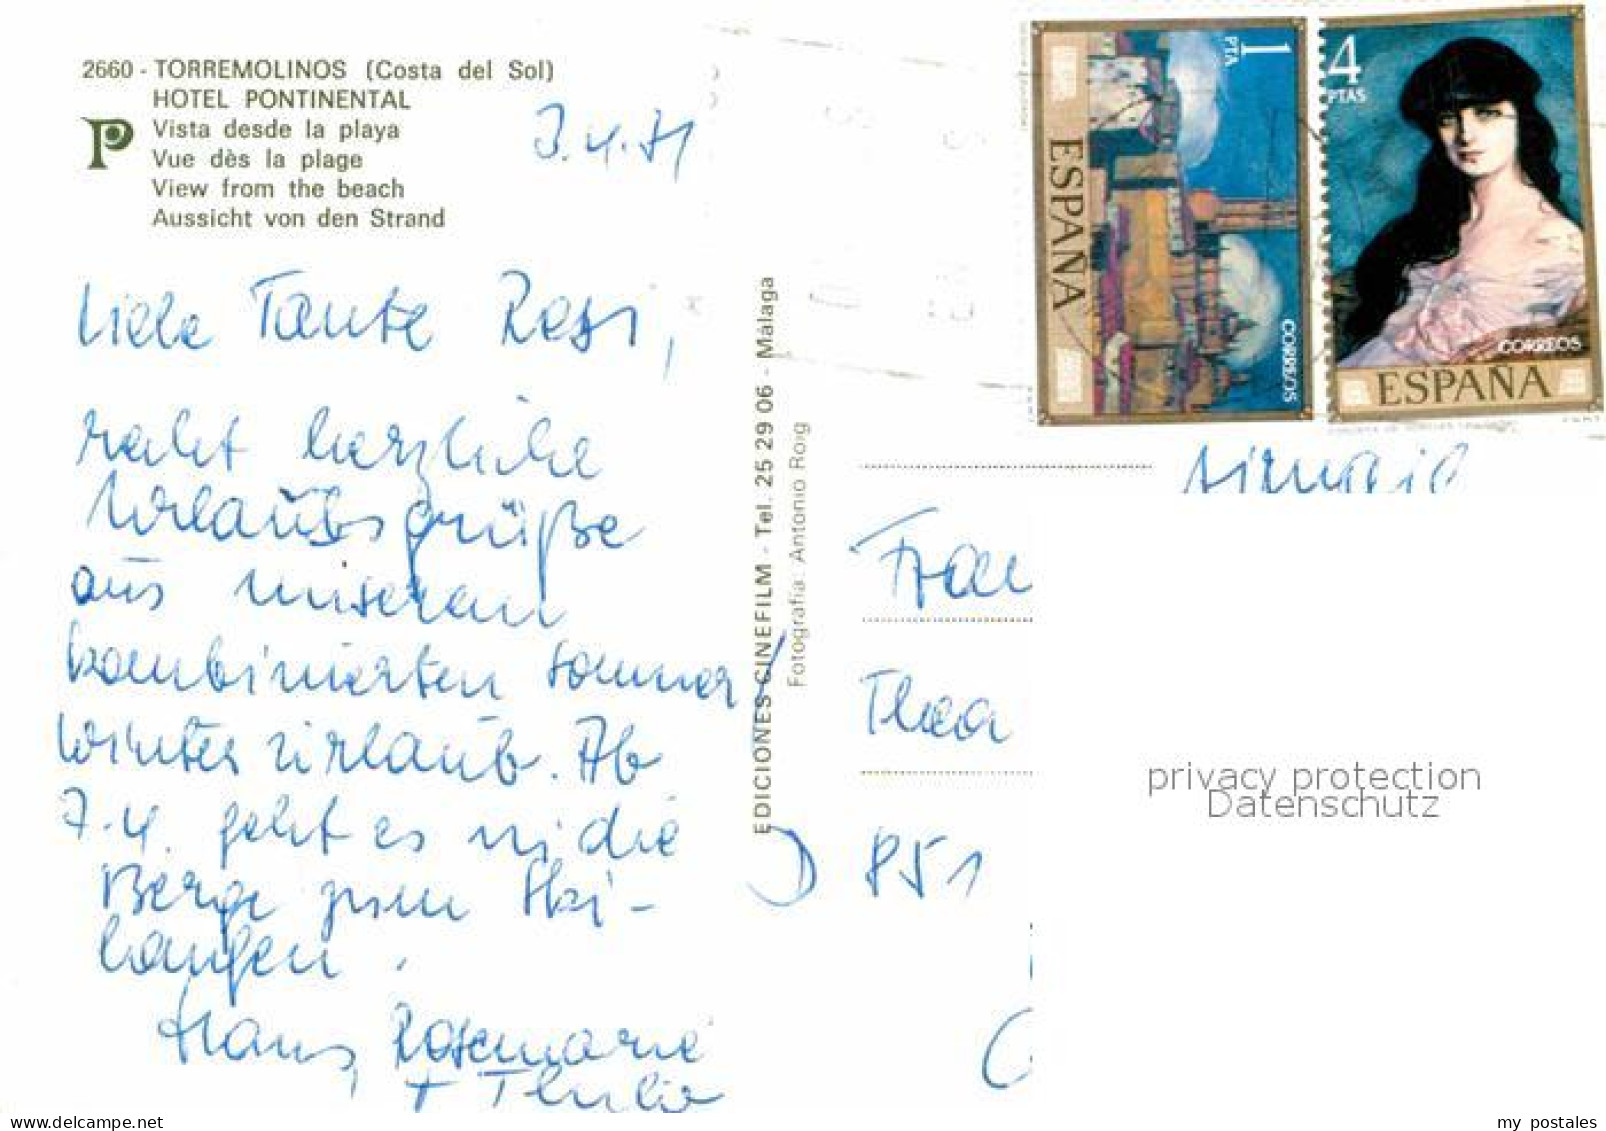 2660 - TORREMOLINOS (Costa del Sol)
HOTEL PONTINENTAL
P
Vista desde la playa
Vue dès la plage
View from the beach
Aussicht von den Strand
3.4.71
Liebe Tante Resi,
recht herzliche
Urlaubsgrüße
aus unserem
kombinierten Sommer/
Winterurlaub. Ab
7.4. geht es in die
Berge zum Ski-
laufen.
Hans, Rosemarie
+
EDICIONES CINEFILM - Tel. 25 29 06 - Málaga
Fotografía: Antonio Roig
1 PTA
ESPAÑA
CORREOS
4 PTAS
CORREOS
ESPAÑA
Frau
Thea
D 851
privacy protection
Datenschutz
my postales